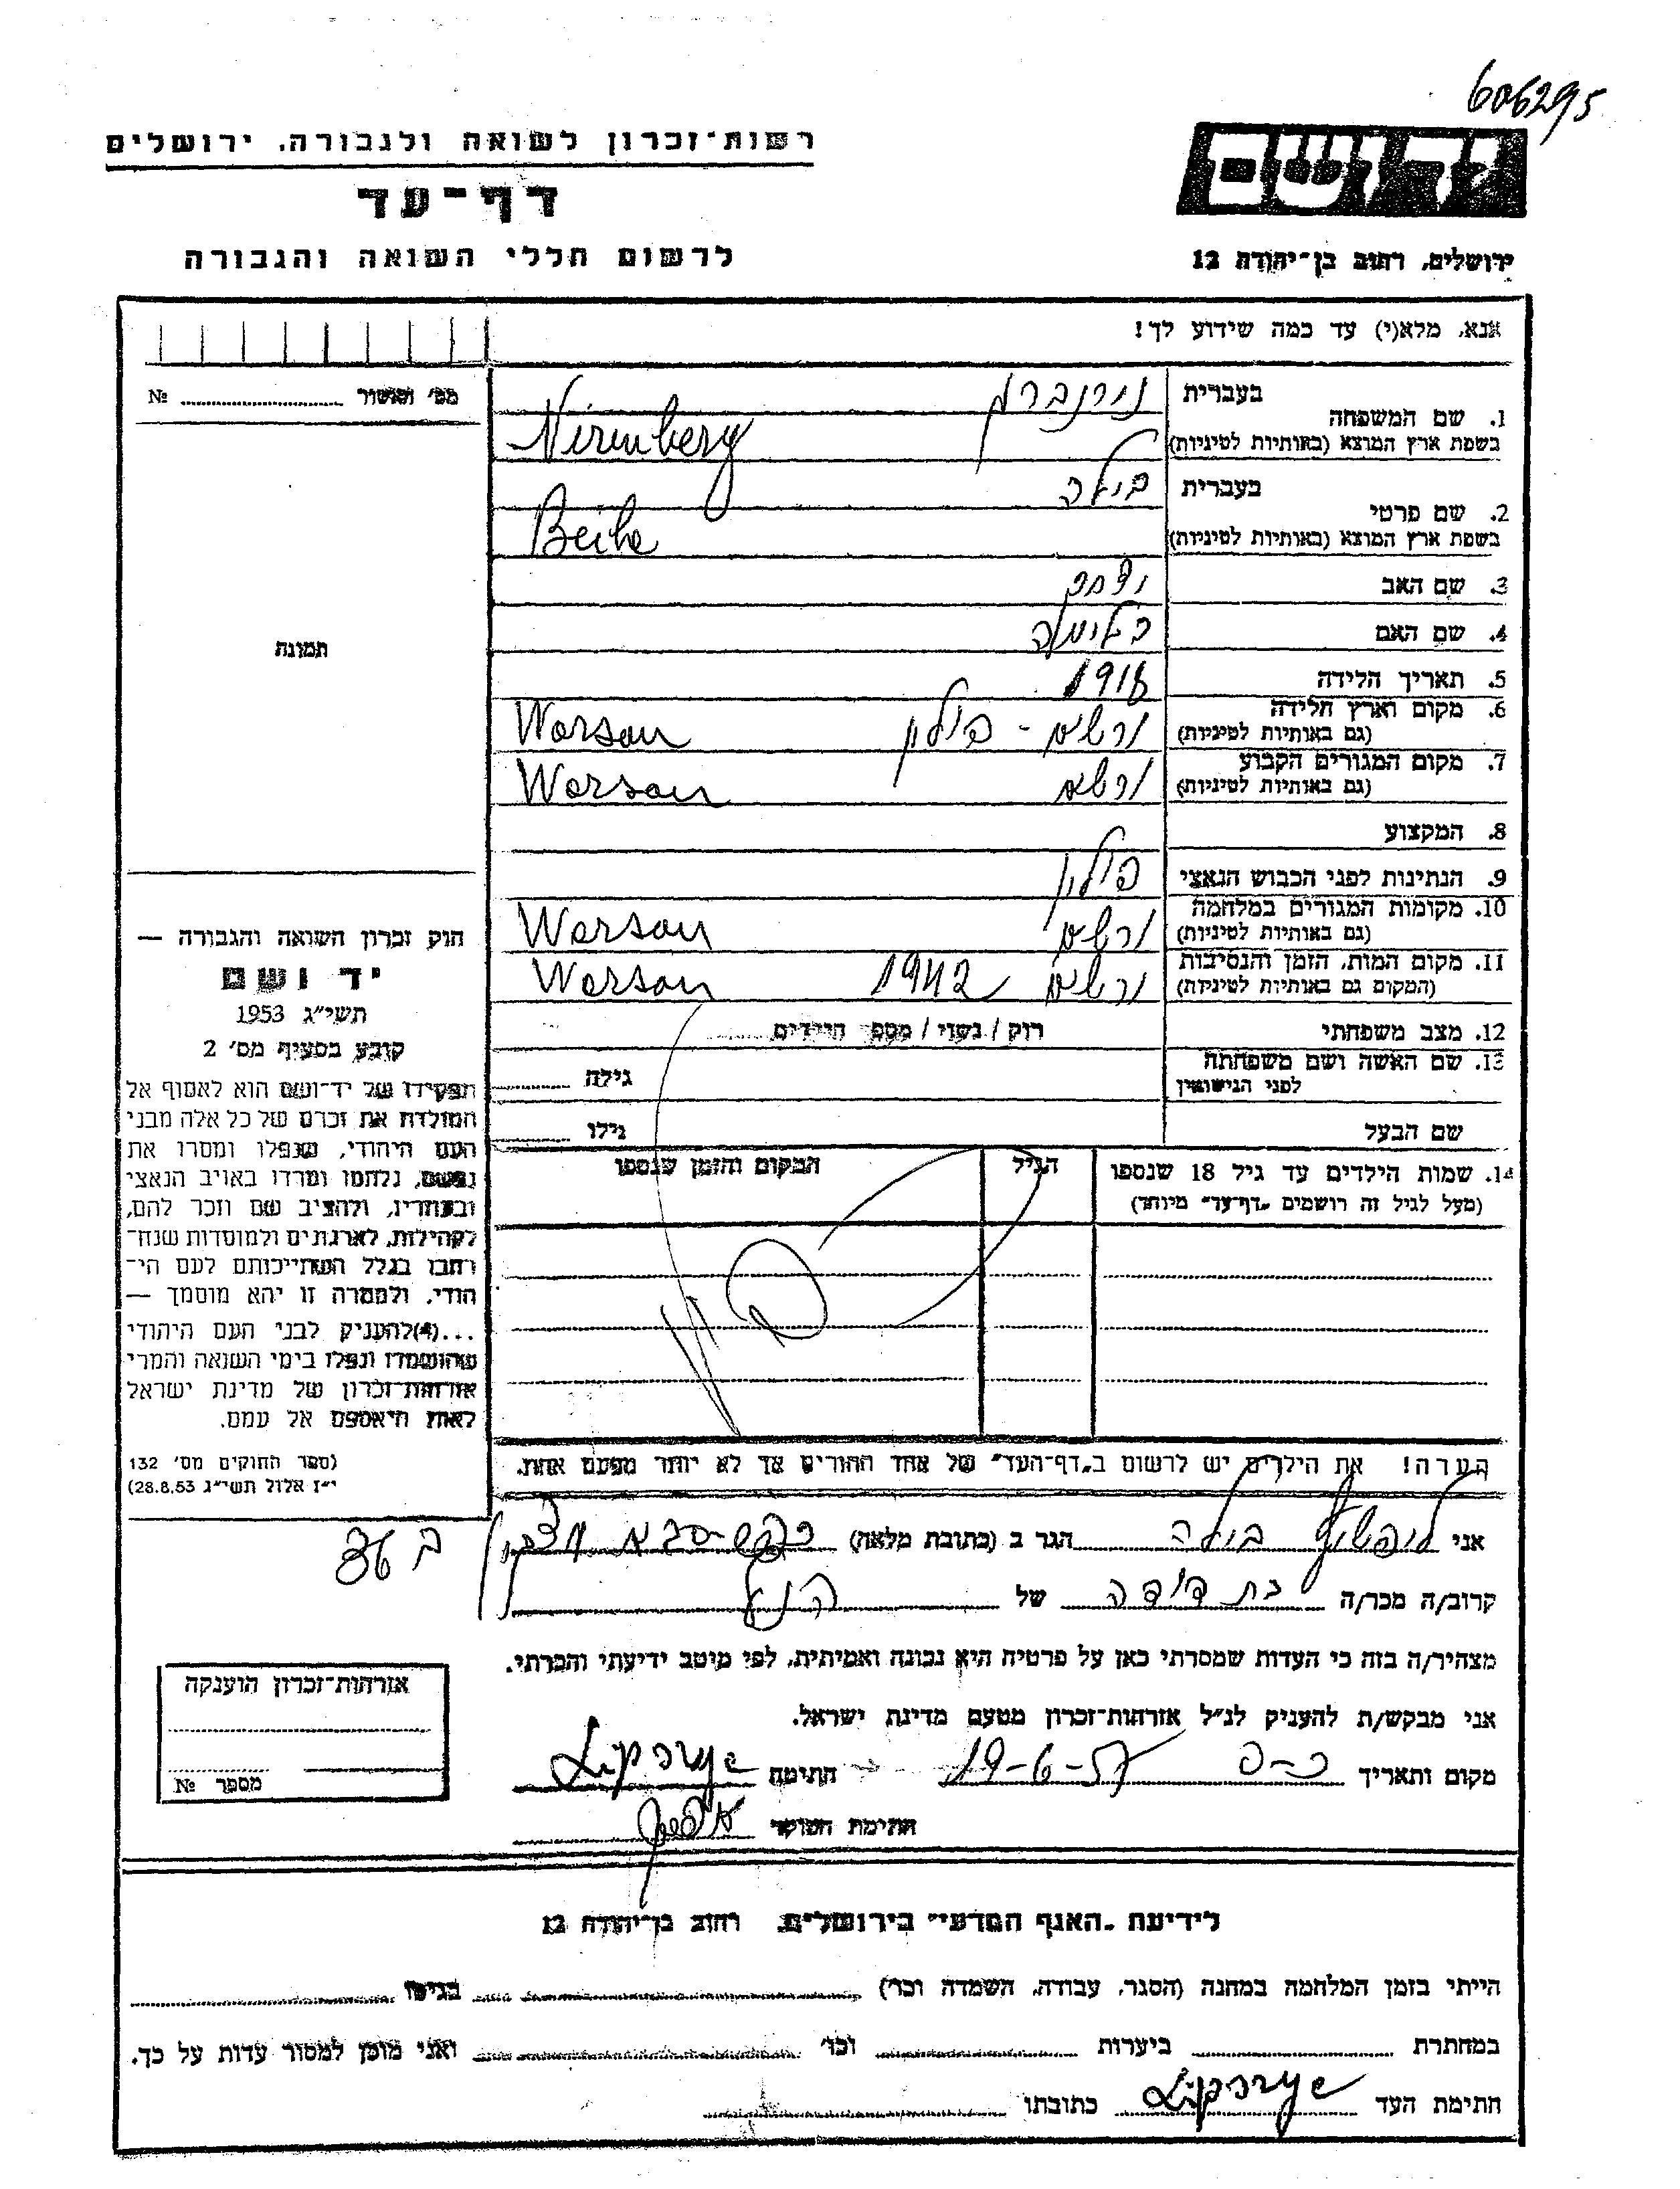 606295
רשות־זכרון לשואה ולגבורה, ירושלים
דף־עד
לרשום חללי השואה והגבורה
ידושם
ירושלים, רחוב בן־יהודה 12
אנא, מלא(י) עד כמה שידוע לך!
מס׳ וסוער № 
1. שם המשפחה
בעברית נירנברג
בשפת ארץ המוצא (באותיות לטיניות) Nirenberg
2. שם פרטי
בעברית בילה
בשפת ארץ המוצא (באותיות לטיניות) Beile
3. שם האב יצחק
4. שם האם
5. תאריך הלידה 1918
6. מקום וארץ הלידה ורשא - פולין Warsaw
(גם באותיות לטיניות)
7. מקום המגורים הקבוע ורשא Warsaw
(גם באותיות לטיניות)
8. המקצוע
9. הנתינות לפני הכבוש הנאצי פולין
10. מקומות המגורים במלחמה ורשא Warsaw
(גם באותיות לטיניות)
11. מקום המות, הזמן והנסיבות ורשא 1942 Warsaw
(המקום גם באותיות לטיניות)
12. מצב משפחתי רוק / נשוי / מספ׳ הילדים
13. שם האשה ושם משפחתה גילה
לפני הנישואין
שם הבעל גילו
14. שמות הילדים עד גיל 18 שנספו הגיל המקום והזמן שנספו
(מעל לגיל זה רושמים „דף־עד" מיוחד)
תמונה
חוק זכרון השואה והגבורה —
יד ושם
תשי״ג 1953
קובע בסעיף מס׳ 2
תפקידו של יד־ושם הוא לאסוף אל
המולדת את זכרם של כל אלה מבני
העם היהודי, שנפלו ומסרו את
נפשם, נלחמו ומרדו באויב הנאצי
ובעוזריו, ולהציב שם וזכר להם,
לקהילות, לארגונים ולמוסדות שנח־
רבו בגלל השתייכותם לעם הי־
הודי, ולמטרה זו יהא מוסמך —
...(4)להעניק לבני העם היהודי
שהושמדו ונפלו בימי השואה והמרי
אזרחות־זכרון של מדינת ישראל
לאות היאספם אל עמם.
(ספר החוקים מס׳ 132
י״ז אלול תשי״ג 28.8.53)
הערה! את הילדים יש לרשום ב„דף־העד" של אחד ההורים אך לא יותר מפעם אחת.
אני ליפשיץ בילה הגר ב (כתובת מלאה) כפר-סבא
קרוב/ה מכר/ה בת דודה של הנ״ל
מצהיר/ה בזה כי העדות שמסרתי כאן על פרטיה היא נכונה ואמיתית, לפי מיטב ידיעתי והכרתי.
אני מבקש/ת להעניק לנ״ל אזרחות־זכרון מטעם מדינת ישראל.
מקום ותאריך כ-ס 19-6-57 חתימה
חתימת הפוקד
אזרחות־זכרון הוענקה
מספר №
לידיעת „האגף המדעי" בירושלים, רחוב בן־יהודה 12
הייתי בזמן המלחמה במחנה (הסגר, עבודה, השמדה וכו׳) בגיטו
במחתרת ביערות וכו׳ ואני מוכן למסור עדות על כך.
חתימת העד כתובתו